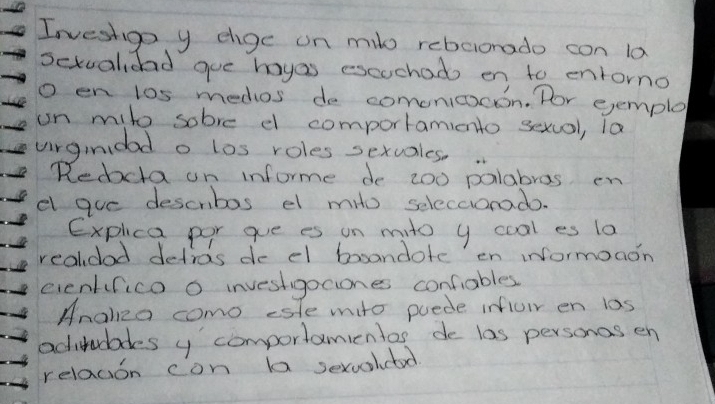 Investiga y elige un mito relacionado con la
sexualidad que hayas escuchado en tu entorno
o en los medios de comunicación. Por ejemplo
un mito sobre el comportamiento sexual, la
virginidad o los roles sexuales.
Redacta un informe de 200 palabras en
el que describas el mito seleccionado.
Explica por que es un mito y cual es la
realidad detrás de el basandote en información
cientifica o investigaciones confiables.
Analiza como este mito puede influir en las
actitudades y comportamientos de las personas en
relación con la sexualidad.